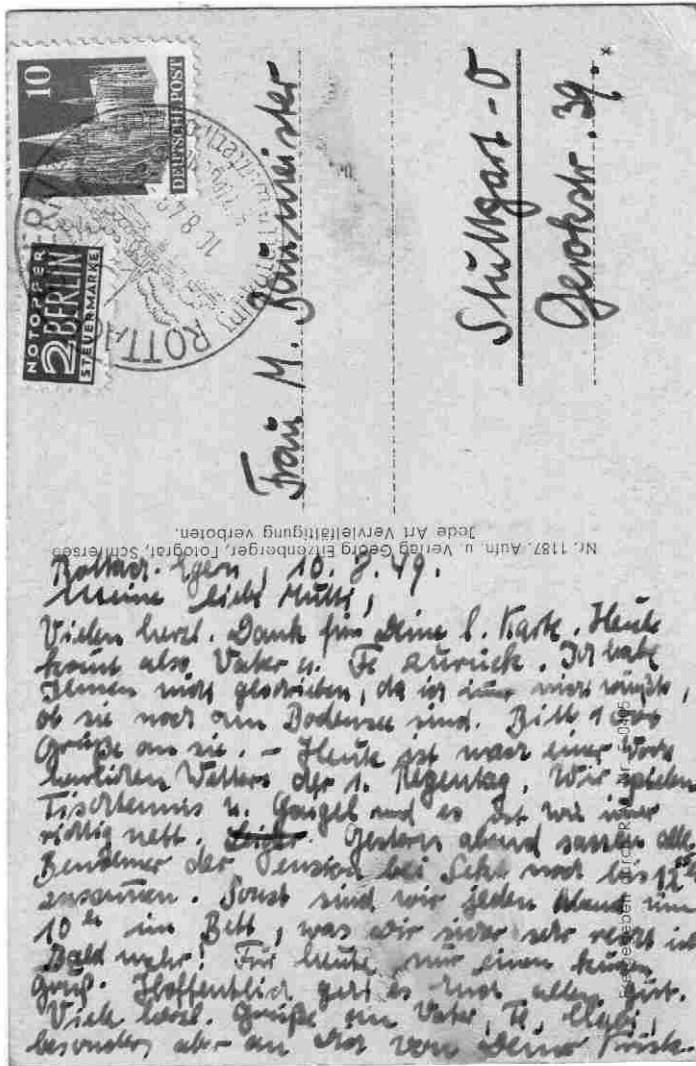 10
DEUTSCHE POST
NOTOPFER
2 BERLIN
STEUERMARKE
ROTTAC
Frau M. Baumeister
Stuttgart-O
Gerokstr. 39.
Nr. 1187. Aufn. u. Verlag Georg Eitzenberger, Fotograf, Schliersee
Jede Art Vervielfältigung verboten.
Rottach-Egern, 10. 8. 49.
Meine liebe Mutti,
Vielen herzl. Dank für Deine l. Karte. Heute
kommt also Vater u. zurück. Ich habe
Ihnen nicht geschrieben, da ich immer nicht wußte,
ob sie noch am Bodensee sind. Bitte 1000
Grüße an sie. – Heute ist nach einer Woche
herrlichen Wetters der 1. Regentag. Wir spielen
Tischtennis u. Gaigel und es ist wie immer
richtig nett. Gestern abend sassen alle
Bewohner der Pension bei Sekt noch bis 12
zusammen. Sonst sind wir jeden Abend um
10 im Bett, was Dir sicher sehr recht ist
Bald mehr! Für heute nur einen kurzen
Gruß. Hoffentlich geht es Euch allen gut.
Viele herzl. Grüße an Vater,
besonders aber an Dich von Deiner